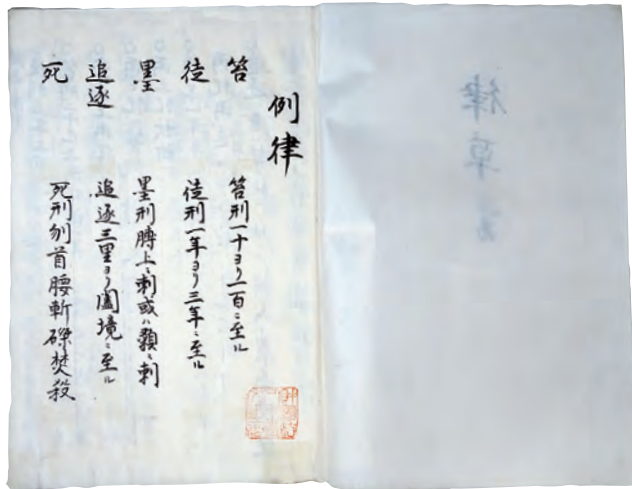 律草
例律
笞 笞刑一十ヨリ一百ニ至ル
徒 徒刑一年ヨリ三年ニ至ル
墨 墨刑膊上ニ刺或ハ顙ニ刺
追逐 追逐三里ヨリ闔境ニ至ル
死 死刑刎首腰斬磔焚殺